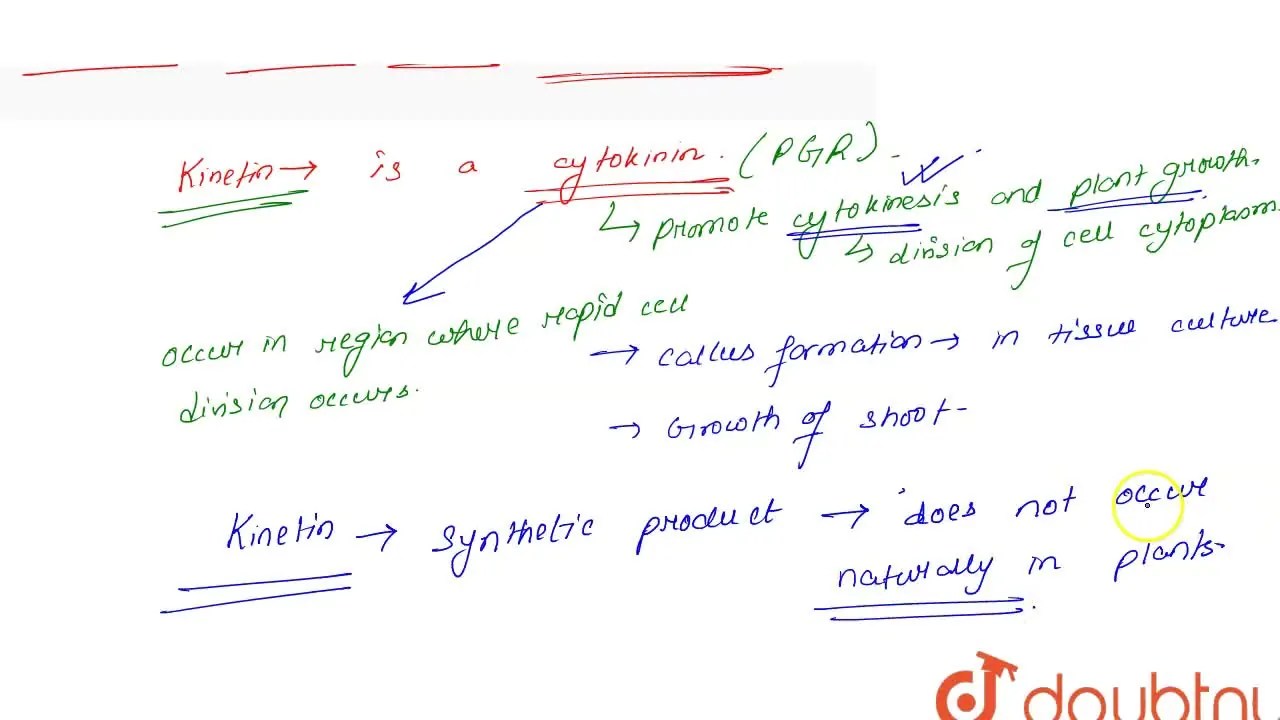 Kinetin → is a cytokinin. (PGR)
↳ promote cytokinesis and plant growth.
↳ division of cell cytoplasm.
occur in region where rapid cell
division occurs.
→ callus formation → in tissue culture
→ Growth of shoot
Kinetin → synthetic product → does not occur
naturally in plants.
doubtnu